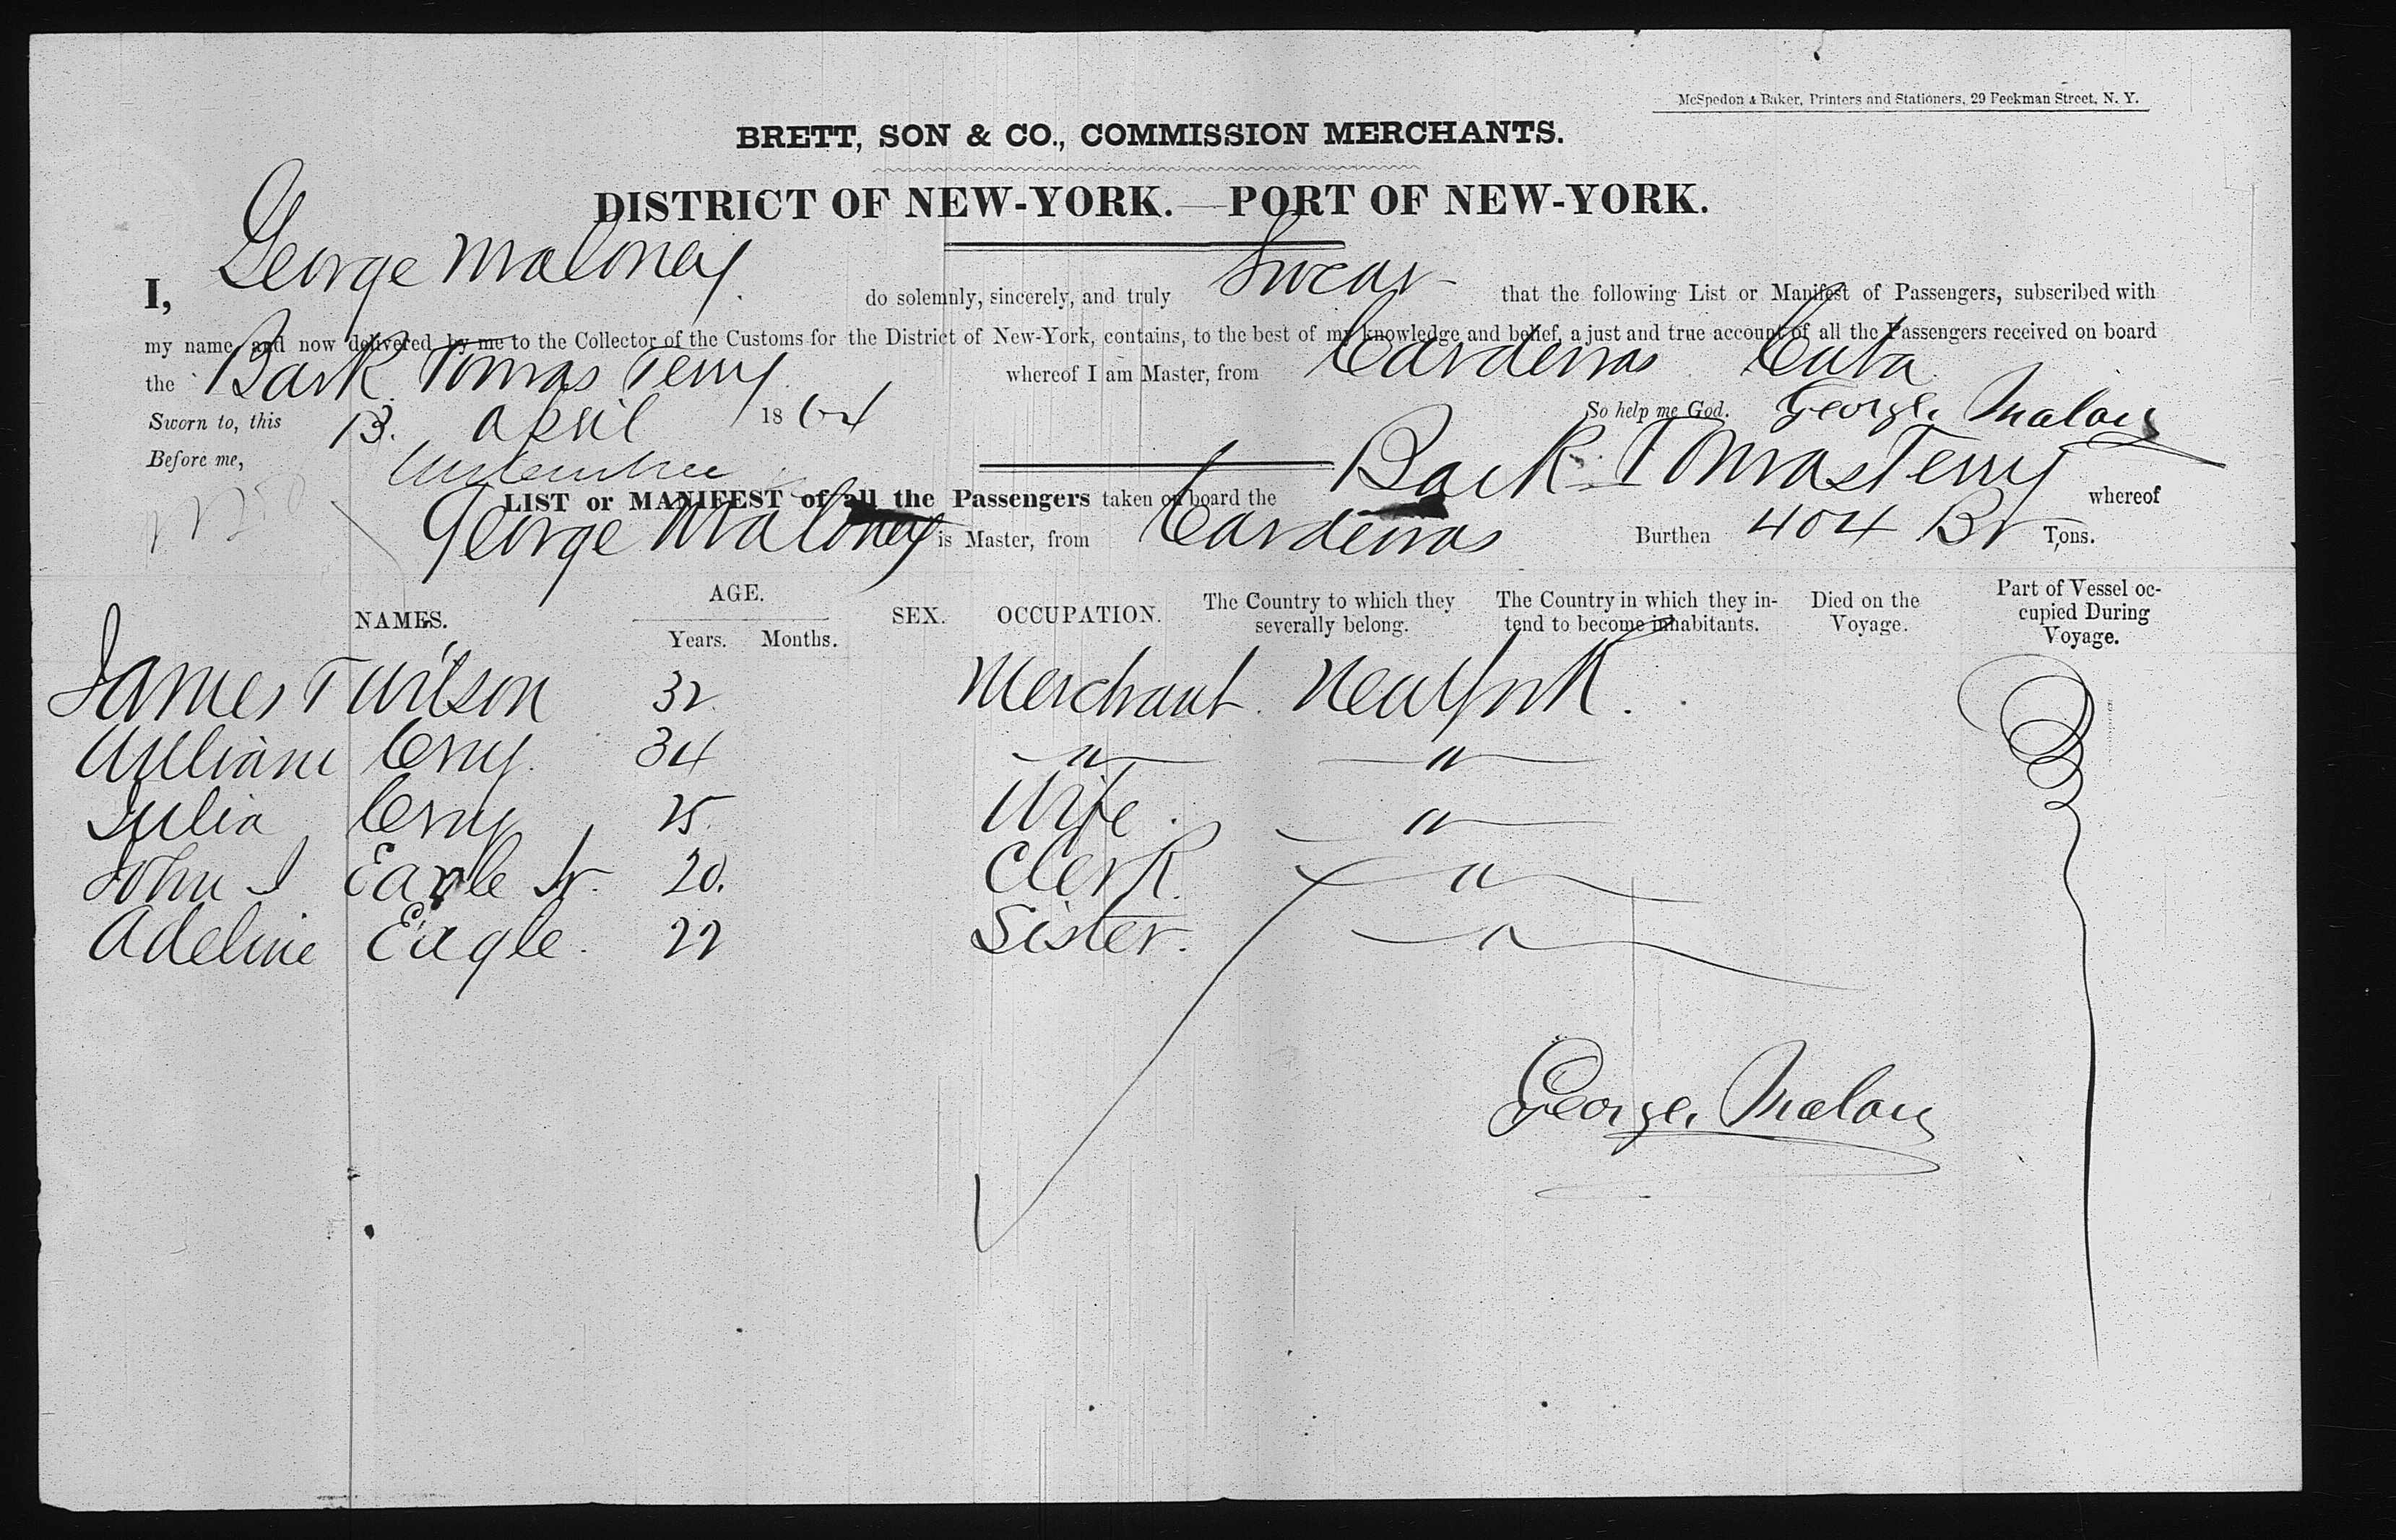 McSpedon & Baker, Printers and Stationers, 29 Beekman Street, N. Y.
BRETT, SON & CO., COMMISSION MERCHANTS.
DISTRICT OF NEW-YORK.—PORT OF NEW-YORK.
I, George Maloney do solemnly, sincerely, and truly Swear that the following List or Manifest of Passengers, subscribed with
my name, and now delivered by me to the Collector of the Customs for the District of New-York, contains, to the best of my knowledge and belief, a just and true account of all the Passengers received on board
the Bark Tomas Terry whereof I am Master, from Cardenas Cuba
Sworn to, this 13. April 1864 So help me God. George Malony
Before me,
LIST or MANIFEST of all the Passengers taken on board the Bark Tomas Terry whereof
George Maloney is Master, from Cardenas Burthen 404 Br Tons.
NAMES. AGE. Years. Months. SEX. OCCUPATION. The Country to which they severally belong. The Country in which they intend to become inhabitants. Died on the Voyage. Part of Vessel occupied During Voyage.
James T Wilson 32 Merchant New York.
William 34 " "
Julia 25. Wife "
John J Eagle Jr. 20. Clerk "
Adeline Eagle. 22 Sister. "
George Malony